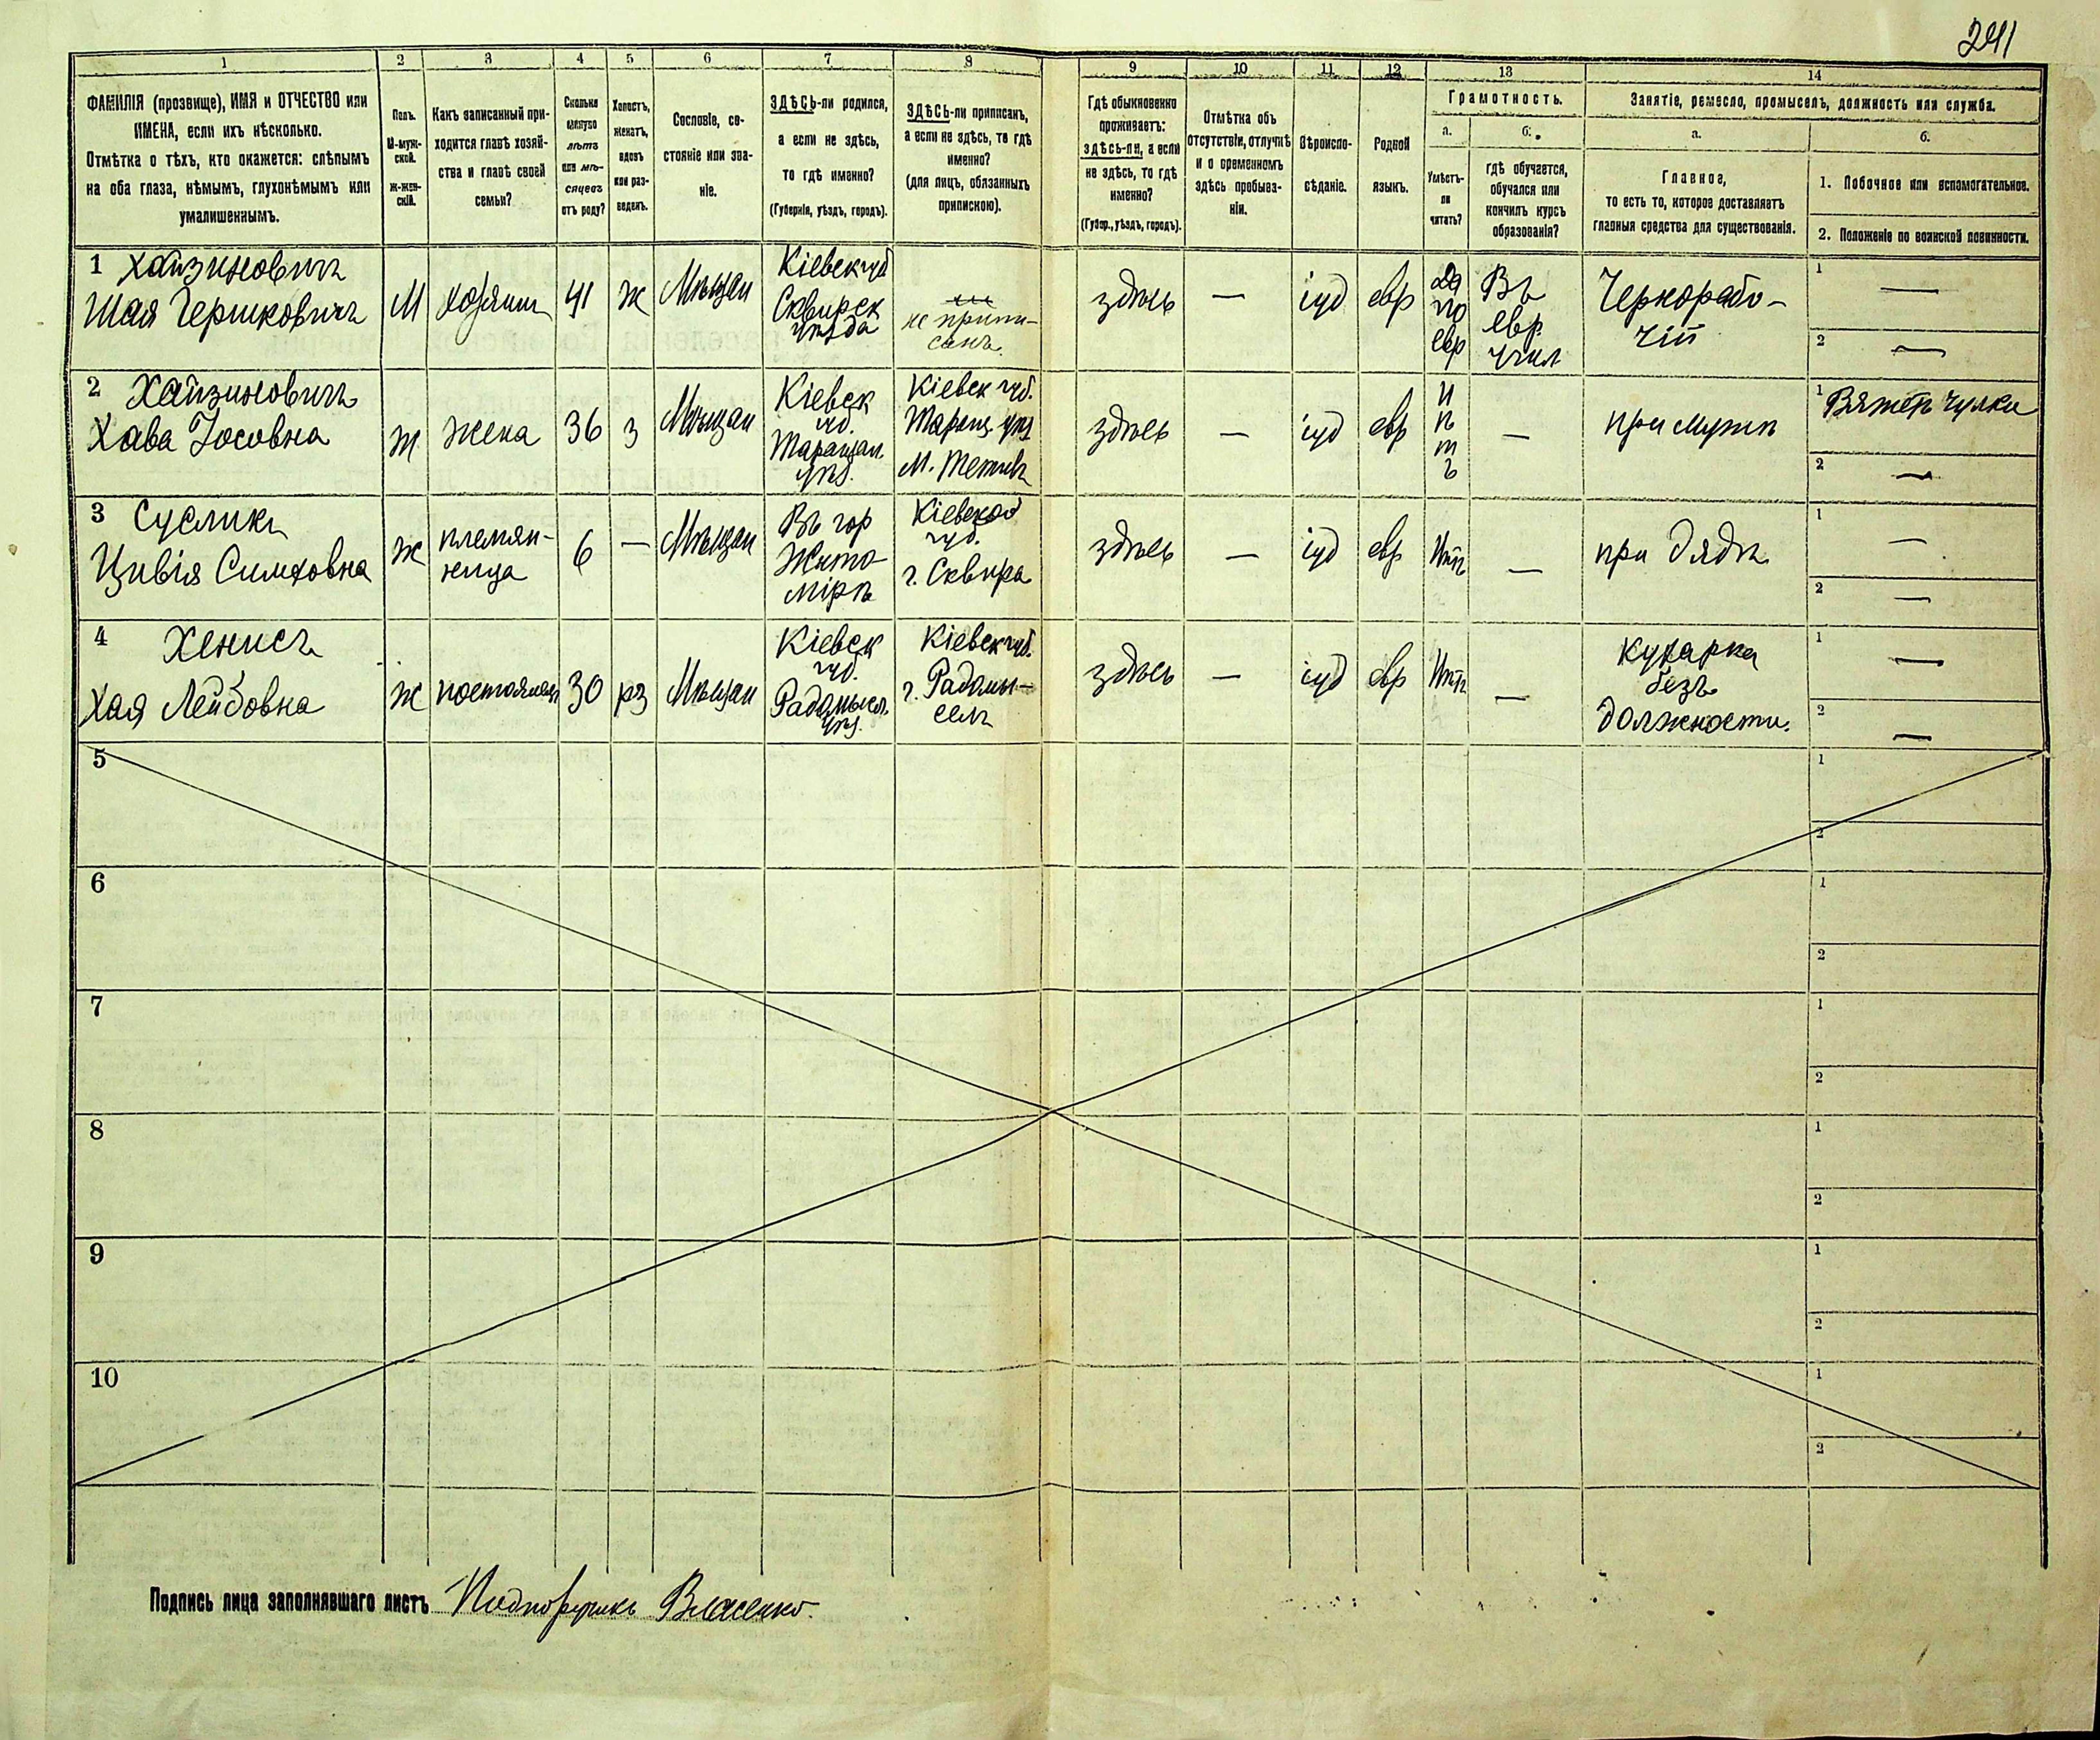 241
1 2 3 4 5 6 7 8 9 10 11 12 13 14
ФАМИЛІЯ (прозвище), ИМЯ и ОТЧЕСТВО или
ИМЕНА, если ихъ нѣсколько.
Отмѣтка о тѣхъ, кто окажется: слѣпымъ
на оба глаза, нѣмымъ, глухонѣмымъ или
умалишеннымъ.
Полъ.
М-муж-
ской.
Ж-жен-
скій.
Какъ записанный при-
ходится главѣ хозяй-
ства и главѣ своей
семьи?
Сколько
минуло
лѣтъ
или мѣ-
сяцевъ
отъ роду?
Холостъ,
женатъ,
вдовъ
или раз-
веденъ.
Сословіе, со-
стояніе или зва-
ніе.
ЗДѢСЬ-ли родился,
а если не здѣсь,
то гдѣ именно?
(Губернія, уѣздъ, городъ).
ЗДѢСЬ-ли приписанъ,
а если не здѣсь, то гдѣ
именно?
(для лицъ, обязанныхъ
припискою).
Гдѣ обыкновенно
проживаетъ:
здѣсь-ли, а если
не здѣсь, то гдѣ
именно?
(Губер., уѣздъ, городъ).
Отмѣтка объ
отсутствіи, отлучкѣ
и о временномъ
здѣсь пребыва-
ніи.
Вѣроиспо-
вѣданіе.
Родной
языкъ.
Грамотность.
а. б.
Умѣетъ-
ли
читать?
гдѣ обучается,
обучался или
кончилъ курсъ
образованія?
Занятіе, ремесло, промыселъ, должность или служба.
а. б.
Главное,
то есть то, которое доставляетъ
главныя средства для существованія.
1. Побочное или вспомогательное.
2. Положеніе по воинской повинности.
1 Хайзиновичъ
Шая Гершковичъ
М
хозяинъ
41
ж
Мѣщан
Кіевск губ
Сквирск
уѣзда
не припи-
санъ.
здѣсь
—
іуд
евр
Да
по
евр
Въ
евр
учил
Чернорабо-
чій
1 —
2 —
2 Хайзиновичъ
Хава Іосовна
Ж
Жена
36
з
Мѣщан
Кіевск
губ.
Таращан.
уѣз.
Кіевск губ.
Таращ. уѣз
М. Тетіев
здѣсь
—
іуд
евр
Н
ѣ
т
ъ
—
при мужѣ
1 Вяжетъ чулки
2 —
3 Сусликъ
Цивія Симховна
Ж
племян-
ница
6
—
Мѣщан
Въ гор
Жито-
мірѣ
Кіевской
губ.
г. Сквира
здѣсь
—
іуд
евр
Нѣтъ
—
при дядѣ
1 —
2 —
4 Хенисъ
Хая Лейбовна
Ж
постоялая
30
рз
Мѣщан
Кіевск
губ.
Радомысл.
уѣз.
Кіевск губ.
г. Радомы-
сель
здѣсь
—
іуд
евр
Нѣтъ
—
Кухарка
безъ
должности.
1 —
2 —
5
1
2
6
1
2
7
1
2
8
1
2
9
1
2
10
1
2
Подпись лица заполнявшаго листъ Подпоручикъ Власенко.